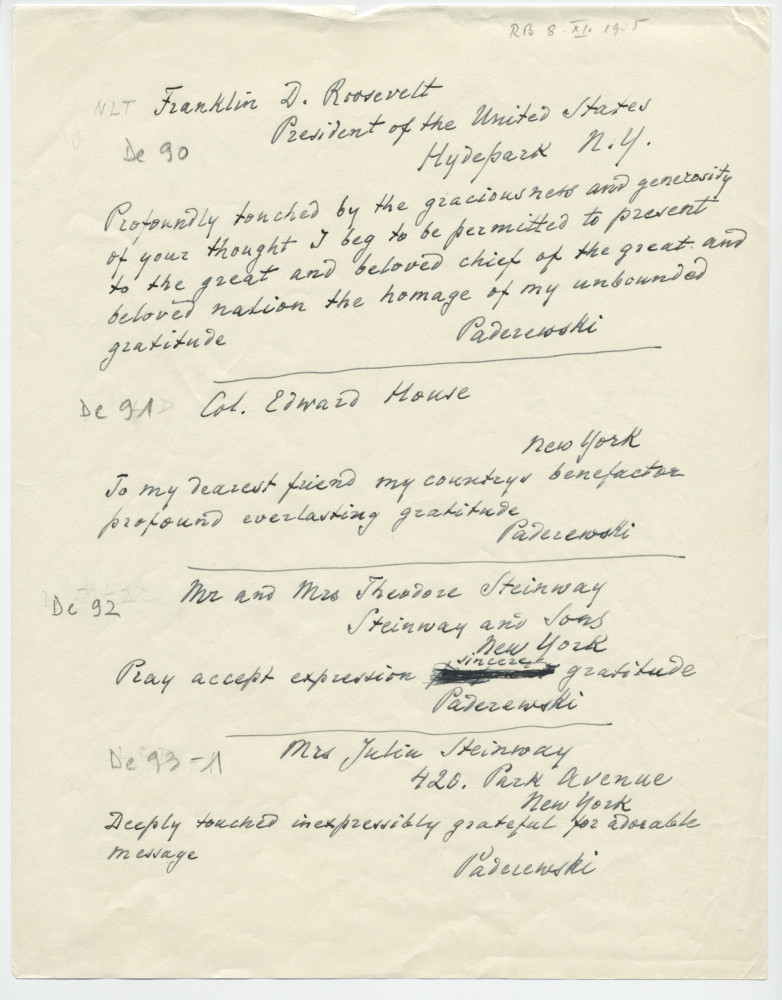 RB 8·XI· 1935
NLT Franklin D. Roosevelt
President of the United States
De 90
Hydepark N.Y.
Profoundly touched by the graciousness and generosity
of your thought I beg to be permitted to present
to the great and beloved chief of the great and
beloved nation the homage of my unbounded
gratitude
Paderewski
De 91 Col. Edward House
New York
To my dearest friend my countrys benefactor
profound everlasting gratitude
Paderewski
De 92 Mr and Mrs Theodore Steinway
Steinway and Sons
New York
Pray accept expression sincere gratitude
Paderewski
De 93-1 Mrs Julia Steinway
420. Park Avenue
New York
Deeply touched inexpressibly grateful for adorable
message
Paderewski